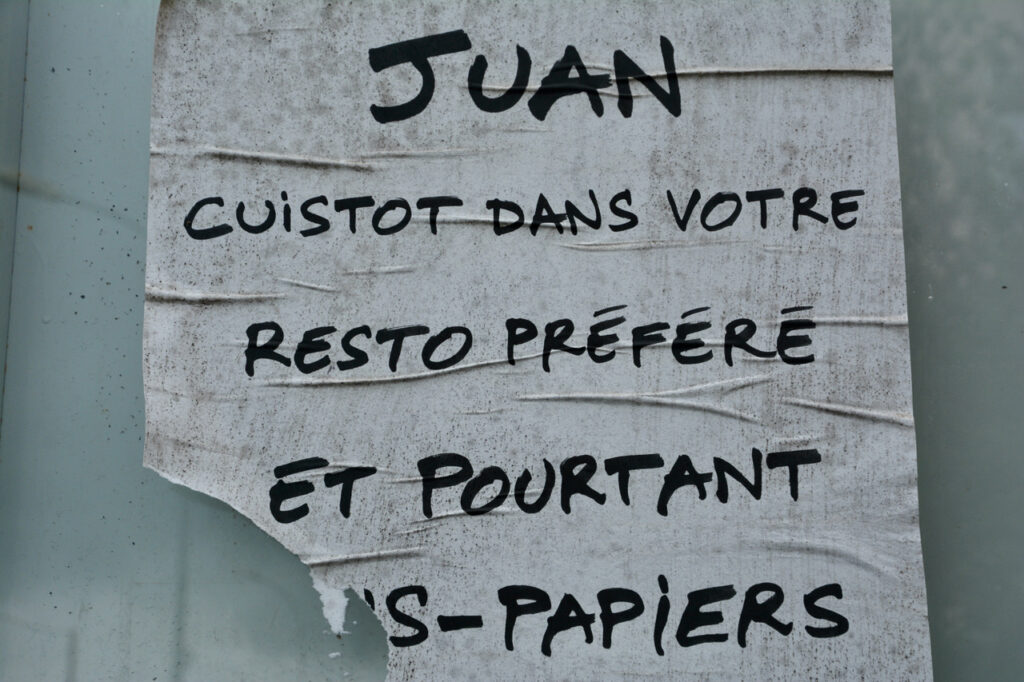 JUAN
CUISTOT DANS VOTRE
RESTO PRÉFÉRÉ
ET POURTANT
S-PAPIERS